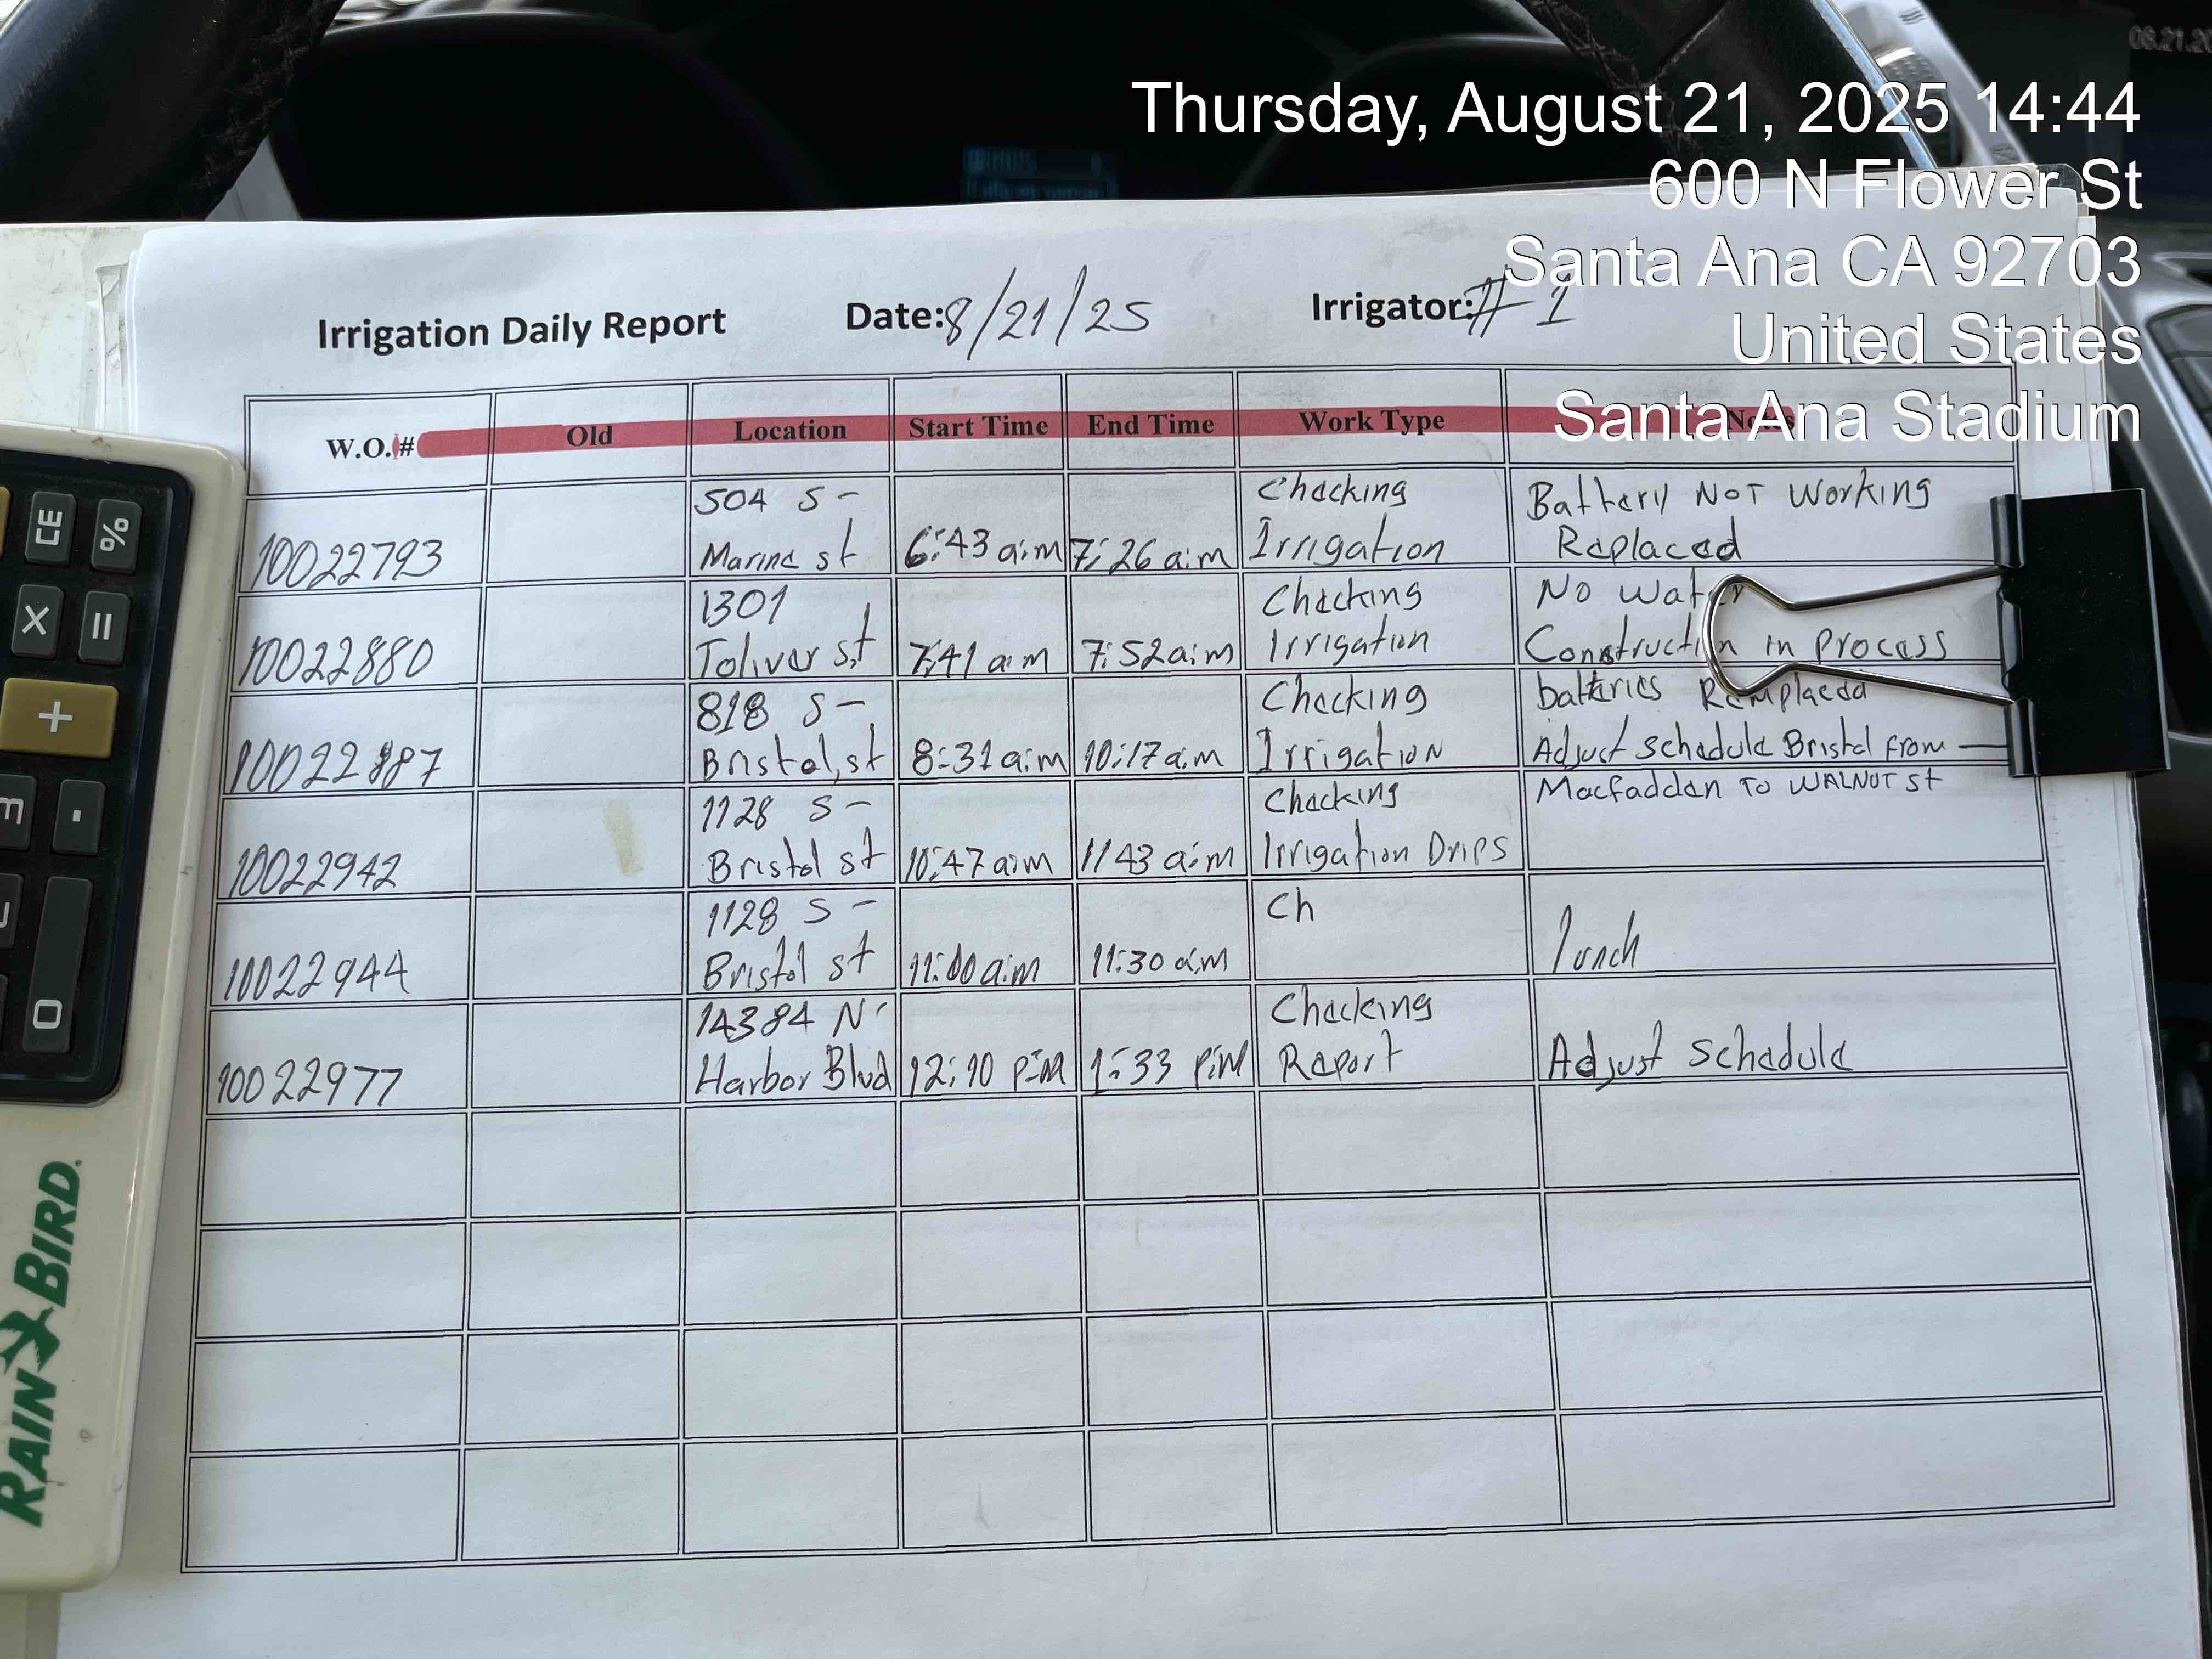 08.21.20
Thursday, August 21, 2025 14:44
600 N Flower St
Santa Ana CA 92703
United States
Santa Ana Stadium
Irrigation Daily Report Date: 8/21/25 Irrigator: # 1
W.O.# Old Location Start Time End Time Work Type Notes
504 S- Checking Battery NOT Working
10022793 Marine st 6:43 a:m 7:26 a:m Irrigation Replaced
1301 Checking No Water
10022880 Toliver st 7:41 a:m 7:52 a:m Irrigation Construction in Process
818 S- Checking batteries Remplaced
10022887 Bristol, st 8:31 a:m 10:17 a:m Irrigation Adjust schedule Bristol from —
1128 S- Checking Macfadden TO WALNUT st
10022942 Bristol st 10:47 a:m 1143 a:m Irrigation Drips
1128 S- Ch
10022944 Bristol st 11:00 a:m 11:30 a:m lunch
14384 N- Checking
10022977 Harbor Blvd 12:10 P:M 1:33 P:M Report Adjust schedule
CE %
X =
+
.
0
RAIN BIRD